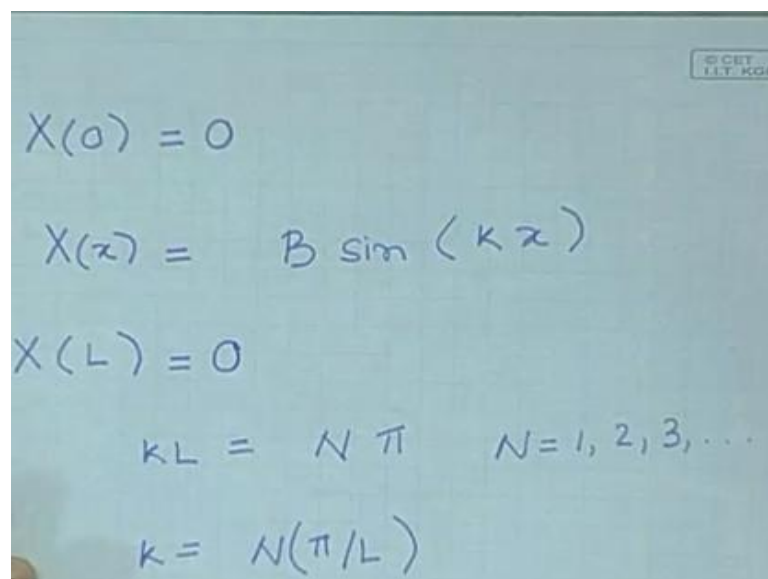 © CET
I.I.T. KGP
X(0) = 0
X(x) = B sin (kx)
X(L) = 0
kL = N π N = 1, 2, 3, ...
k = N(π/L)